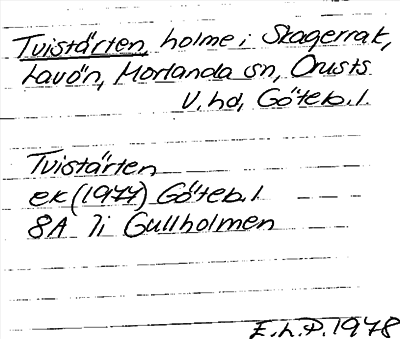 Tvistärten, holme i Skagerrak,
Lavön, Morlanda sn, Orusts
V. hd, Göteb. l.
Tvistärten
ek (1977) Göteb. l
8A 7i Gullholmen
E.h.P. 1978